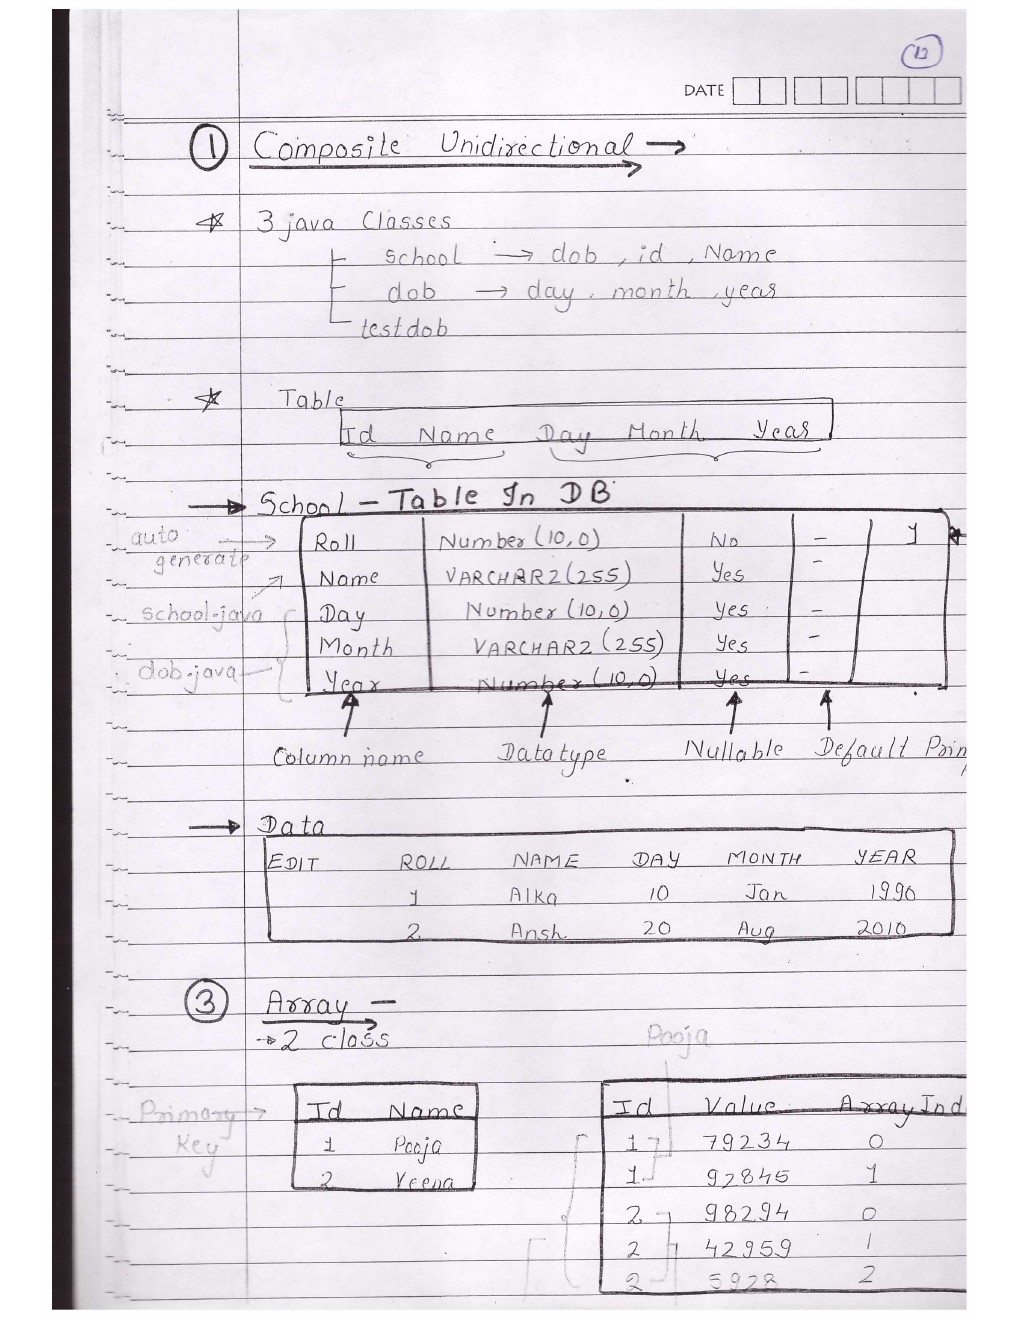 12
DATE
1 Composite Unidirectional →
3 java Classes
school → dob, id, Name
dob → day, month, year
testdob
Table
Id Name Day Month Year
→ School – Table In DB
auto generate → Roll Number (10,0) No – 1
Name VARCHAR2 (255) Yes –
school.java Day Number (10,0) Yes –
Month VARCHAR2 (255) Yes –
dob.java Year Number (10,0) Yes –
Column name Datatype Nullable Default Prim
→ Data
EDIT ROLL NAME DAY MONTH YEAR
1 Alka 10 Jan 1990
2 Ansh 20 Aug 2010
3 Array –
→ 2 class
Pooja
Primary Key → Id Name
1 Pooja
2 Veena
Id Value Array Ind
1 79234 0
1 92845 1
2 98294 0
2 42959 1
2 5928 2